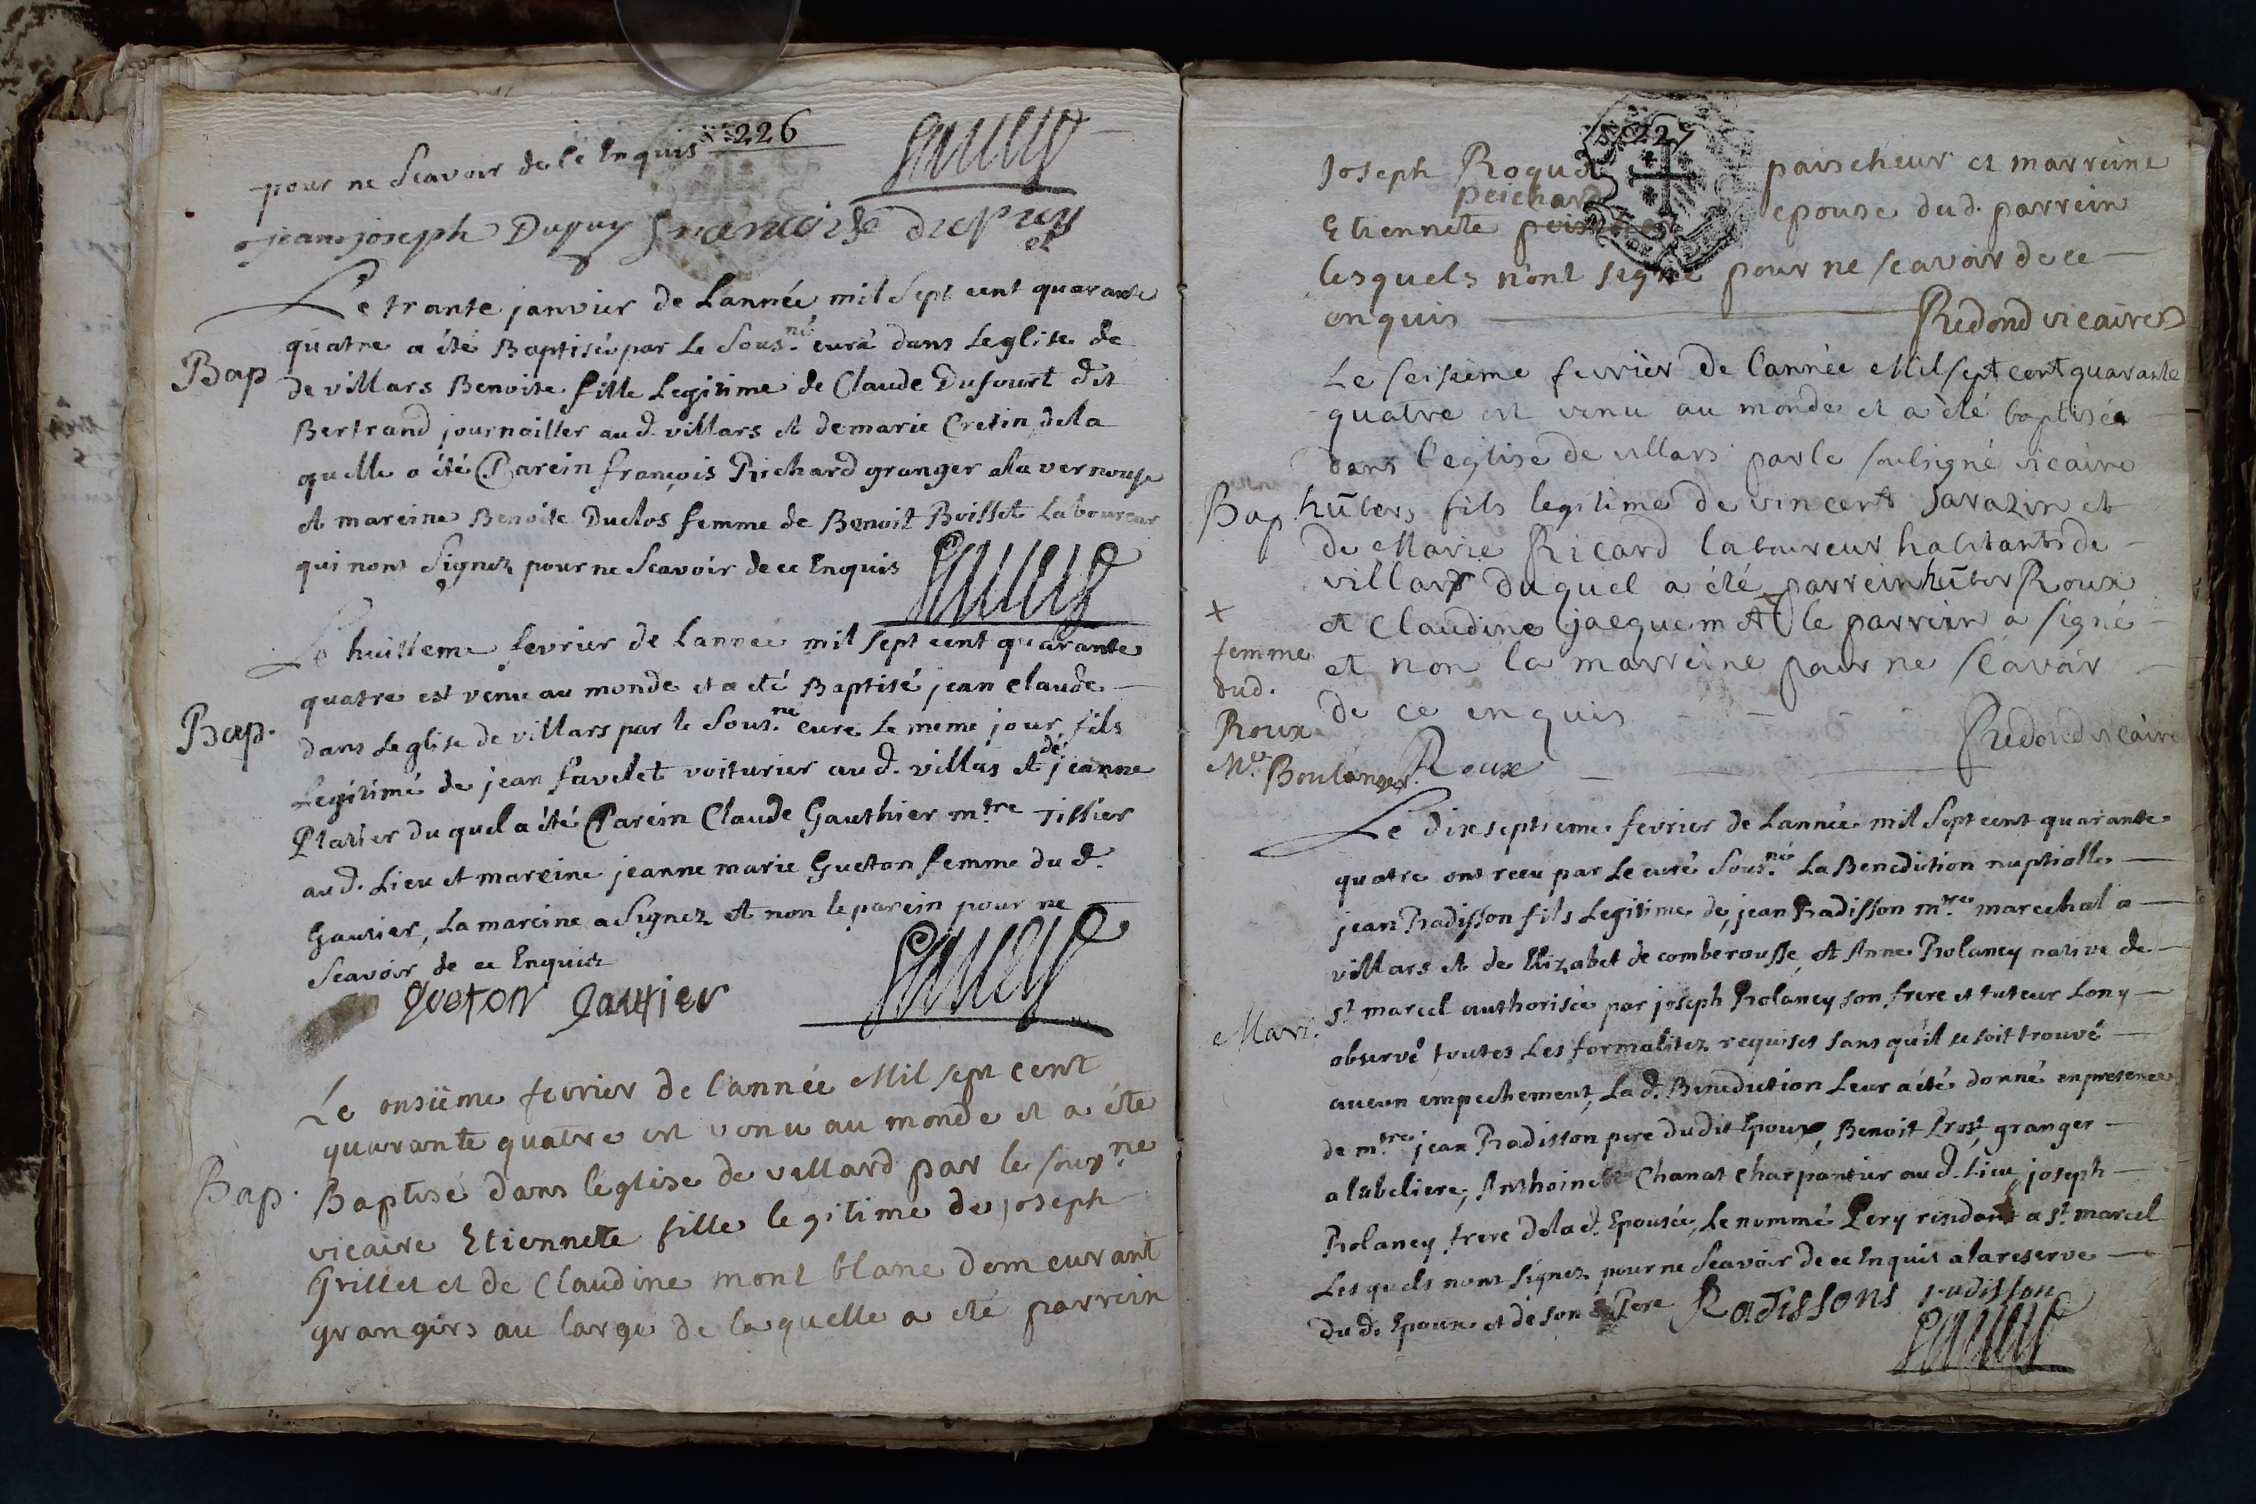 226
pour ne Scavoir de ce Enquis
jean joseph Dupuy francoise dupuy
et
Le trante janvier de Lannée mil Sept cent quarante
quatre a été Baptisée par Le Sous.né curé dans Leglise de
Bap
de villars Benoite fille Legitime de Claude Dufourt dit
Bertrand journailler aud. villars et de marie Cretin, dela
quelle a été Parein françois Richard granger ala vernouse
et mareine Benoite Duclos femme de Benoit Boisset Laboureur
qui nont Signez pour ne Scavoir de ce Enquis
Le huitieme fevrier de Lannée mil sept cent quarante
quatre est venu au monde et a été Baptisé jean claude
Bap.
dans Leglise de villars par le Sous.né curé Le meme jour, fils
Legitime de jean favelet voiturier aud. villars et de jeanne
Platier du quel a été Parein Claude Gauthier mtre Tissier
aud. Lieu et mareine jeanne marie Gueton femme dud.
Gautier, La mareine a Signez et non le parein pour ne
Scavoir de ce Enquis
gueton gautier
Le onsiême fevrier de l'année Mil sept cent
quarante quatre est venu au monde et a été
Bap.
Baptisé dans l'église de villard par le sousné
vicaire Etiennete fille legitime de joseph
Grillet et de Claudine mont blanc demeurant
grangers au large de laquelle a été parrein
227
Joseph Roque paischeur et marreine
peichard
Etiennete epouse dud. parrein
lesquels n'ont signé pour ne scavoir de ce
enquis
Redond vicaire
Le seisieme fevrier de l'année Mil sept cent quarante
quatre est venu au monde et a été baptisée
dans l'eglise de villars par le soussigné vicaire
Bap.
hûbers fils legitime de vincent Sarazin et
de Marie Ricard laboureur habitants de
villars duquel a été parrein hûber Roux
+
et Claudine jacquemet le parrein a signé
femme
dud.
Roux
Me Boulanger
et non la marreine pour ne scavoir
de ce enquis
Redond vicaire
Roux
Le dixseptieme fevrier de Lannée mil Sept cent quarante
quatre ont receu par Le curé Sous.né La Benediction nuptialle
jean Radisson fils Legitime de jean Radisson mtre marechal a
villars et de Elizabet de comberousse, et Anne Rolancy native de
st marcel authorisée par joseph Rolancy son frere et tuteur Lon y
Mari.
observé toutes Les formalitez requises sans qu'il se soit trouvé
aucun empechement, La d. Benediction Leur a été donné en presence
de mtre jean Radisson pere dudit Epoux, Benoit Prost granger
a labeliere, Anthoine Chanat charpantier aud. Lieu, joseph
Rolancy frere de la d. Epousée, Le nommé Pery resident a st marcel
Les quels nont Signez pour ne Scavoir de ce Enquis a la reserve
du d. Epoux et de son Pere Radissons radisson